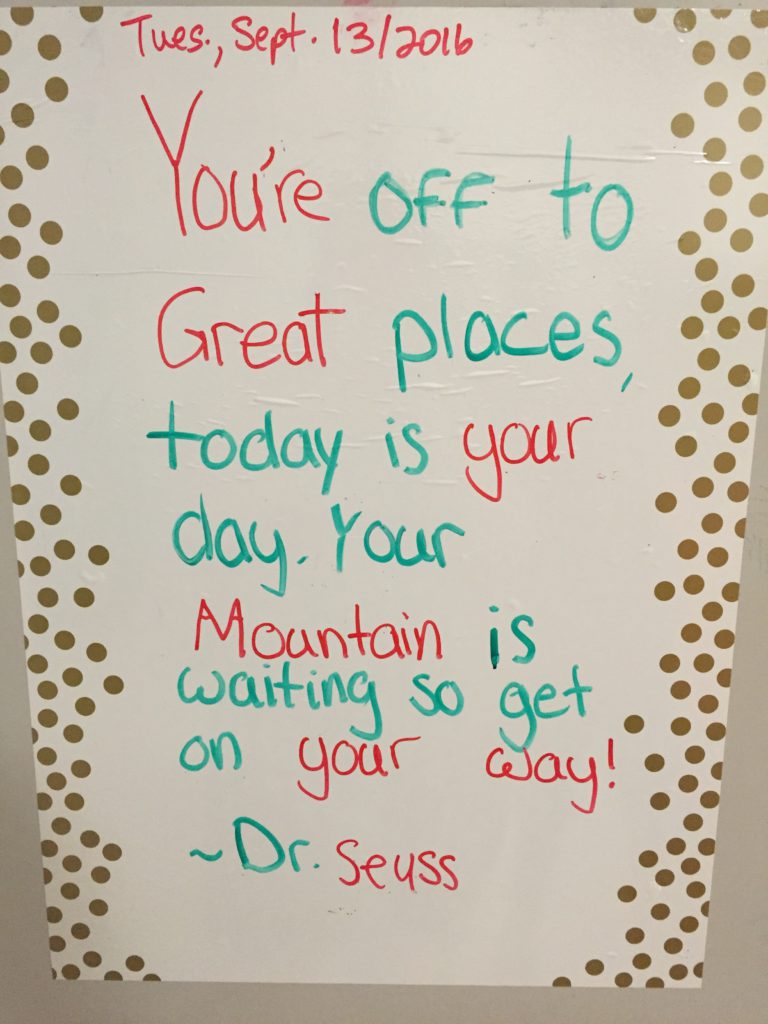 Tues., Sept. 13/2016
You're off to
Great places,
today is your
day. Your
Mountain is
waiting so get
on your way!
~Dr. Seuss